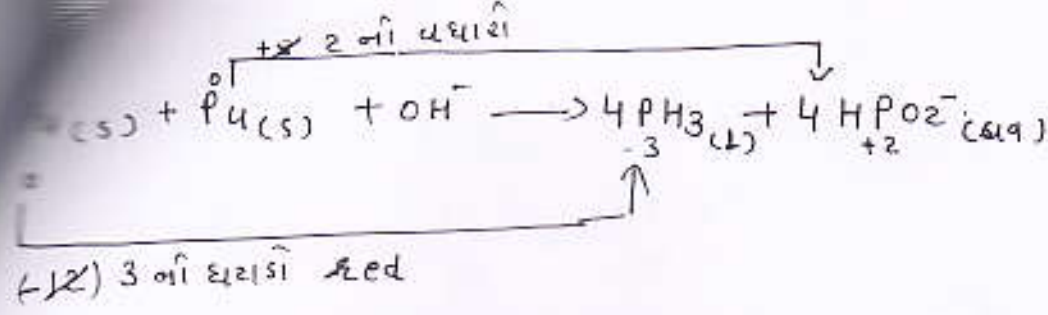 +2 2 નો વધારો
0
(s) + P4(s) + OH⁻ ⟶ 4PH3(l) + 4HPO2⁻(aq)
-3 +2
(-12) 3 નો ઘટાડો Red